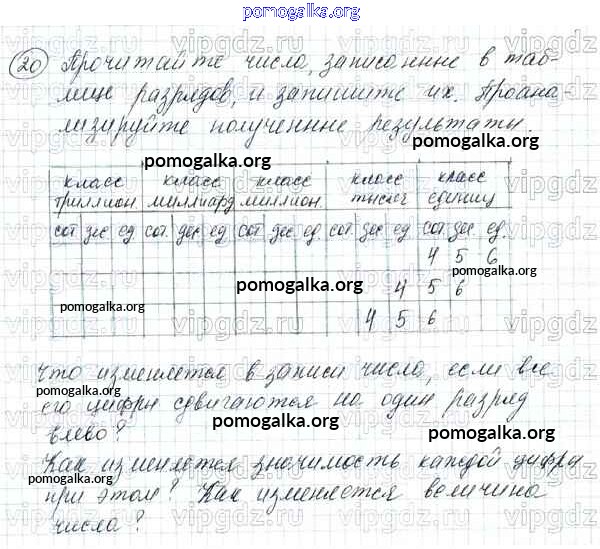 pomogalka.org
20 Прочитайте числа, записанные в таб-
лице разрядов, и запишите их. Проана-
лизируйте полученные результаты.
pomogalka.org
класс триллион класс миллиард класс миллион. класс тысяч класс единиц
pomogalka.org
сот дес ед сот. дес ед сот дес ед. сот. дес ед сот. дес ед.
4 5 6
pomogalka.org
4 5 6
pomogalka.org
4 5 6
Что изменяется в записи числа, если все
pomogalka.org
его цифры сдвигаются на один разряд
влево?
pomogalka.org
Как изменяется значимость каждой цифры
pomogalka.org
при этом? Как изменяется величина
числа?
pomogalka.org